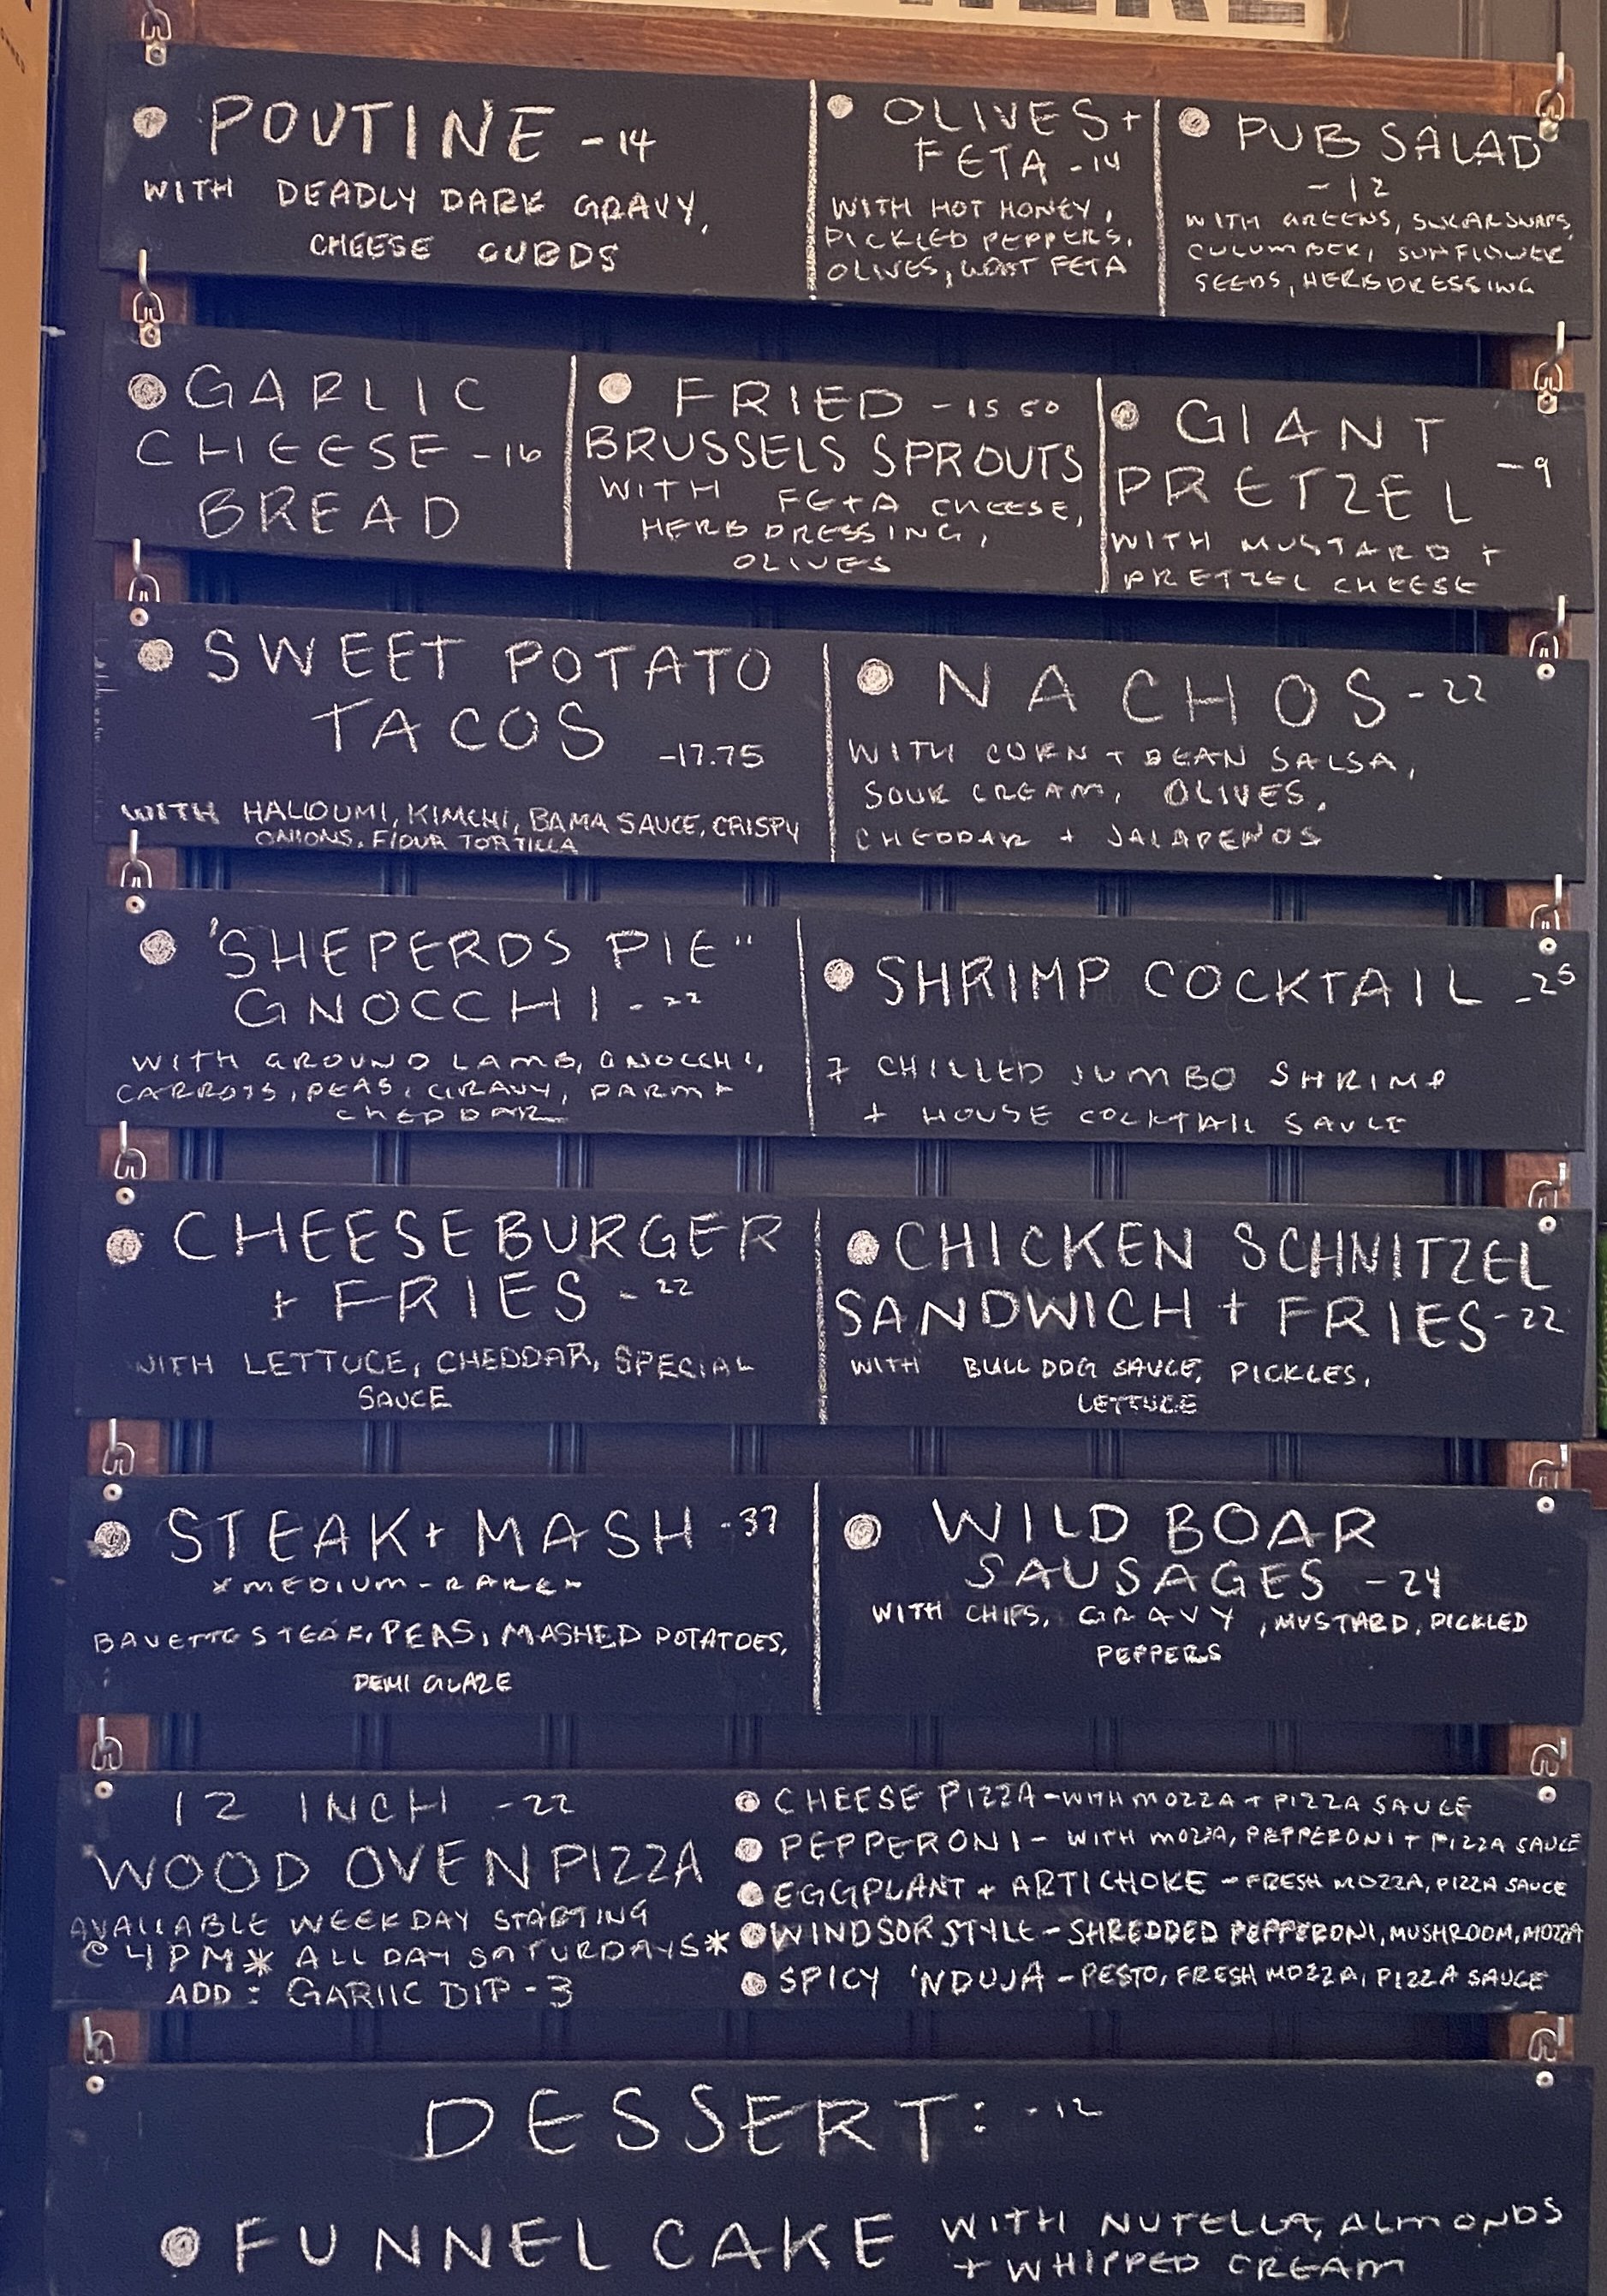 POUTINE - 14
WITH DEADLY DARK GRAVY,
CHEESE CURDS
OLIVES +
FETA - 14
WITH HOT HONEY,
PICKLED PEPPERS,
OLIVES, GOAT FETA
PUB SALAD
- 12
WITH GREENS, SUGAR SNAPS,
CUCUMBER, SUNFLOWER
SEEDS, HERB DRESSING
GARLIC
CHEESE - 16
BREAD
FRIED - 15 50
BRUSSELS SPROUTS
WITH FETA CHEESE,
HERB DRESSING,
OLIVES
GIANT
PRETZEL - 9
WITH MUSTARD +
PRETZEL CHEESE
SWEET POTATO
TACOS - 17.75
WITH HALLOUMI, KIMCHI, BAMA SAUCE, CRISPY
ONIONS, FLOUR TORTILLA
NACHOS - 22
WITH CORN + BEAN SALSA,
SOUR CREAM, OLIVES,
CHEDDAR + JALAPENOS
'SHEPERDS PIE"
GNOCCHI - 22
WITH GROUND LAMB, GNOCCHI,
CARROTS, PEAS, GRAVY, PARM +
CHEDDAR
SHRIMP COCKTAIL - 25
7 CHILLED JUMBO SHRIMP
+ HOUSE COCKTAIL SAUCE
CHEESEBURGER
+ FRIES - 22
WITH LETTUCE, CHEDDAR, SPECIAL
SAUCE
CHICKEN SCHNITZEL
SANDWICH + FRIES - 22
WITH BULL DOG SAUCE, PICKLES,
LETTUCE
STEAK + MASH - 37
*MEDIUM-RARE*
BAVETTE STEAK, PEAS, MASHED POTATOES,
DEMI GLAZE
WILD BOAR
SAUSAGES - 24
WITH CHIPS, GRAVY, MUSTARD, PICKLED
PEPPERS
12 INCH - 22
WOOD OVEN PIZZA
AVAILABLE WEEKDAY STARTING
@ 4PM* ALL DAY SATURDAYS*
ADD: GARLIC DIP - 3
CHEESE PIZZA - WITH MOZZA + PIZZA SAUCE
PEPPERONI - WITH MOZZA, PEPPERONI + PIZZA SAUCE
EGGPLANT + ARTICHOKE - FRESH MOZZA, PIZZA SAUCE
WINDSOR STYLE - SHREDDED PEPPERONI, MUSHROOM, MOZZA
SPICY 'NDUJA - PESTO, FRESH MOZZA, PIZZA SAUCE
DESSERT: - 12
FUNNEL CAKE WITH NUTELLA, ALMONDS
+ WHIPPED CREAM